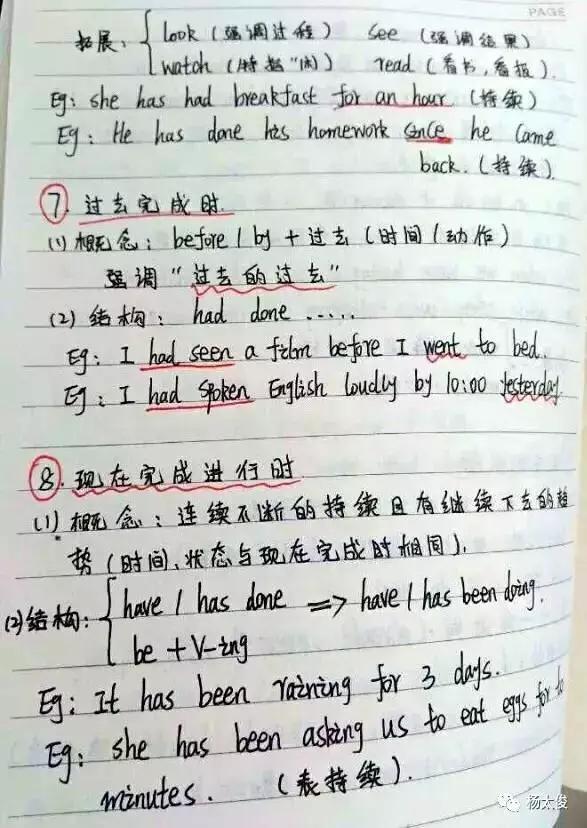 PAGE
拓展: { look (强调过程) see (强调结果)
watch (特指"闲") read (看书,看报).
Eg: she has had breakfast for an hour (持续)
Eg: He has done his homework since he came
back. (持续)
⑦. 过去完成时.
(1) 概念: before / by + 过去 (时间 / 动作)
强调 "过去的过去"
(2) 结构: had done .....
Eg: I had seen a film before I went to bed.
Eg: I had spoken English loudly by 10:00 yesterday.
⑧. 现在完成进行时
(1) 概念: 连续不断的持续且有继续下去的趋
势 (时间、状态与现在完成时相同).
(2) 结构: { have / has done => have / has been doing.
be + V-ing
Eg: It has been raining for 3 days.
Eg: she has been asking us to eat eggs for
minutes. (表持续).
杨太俊